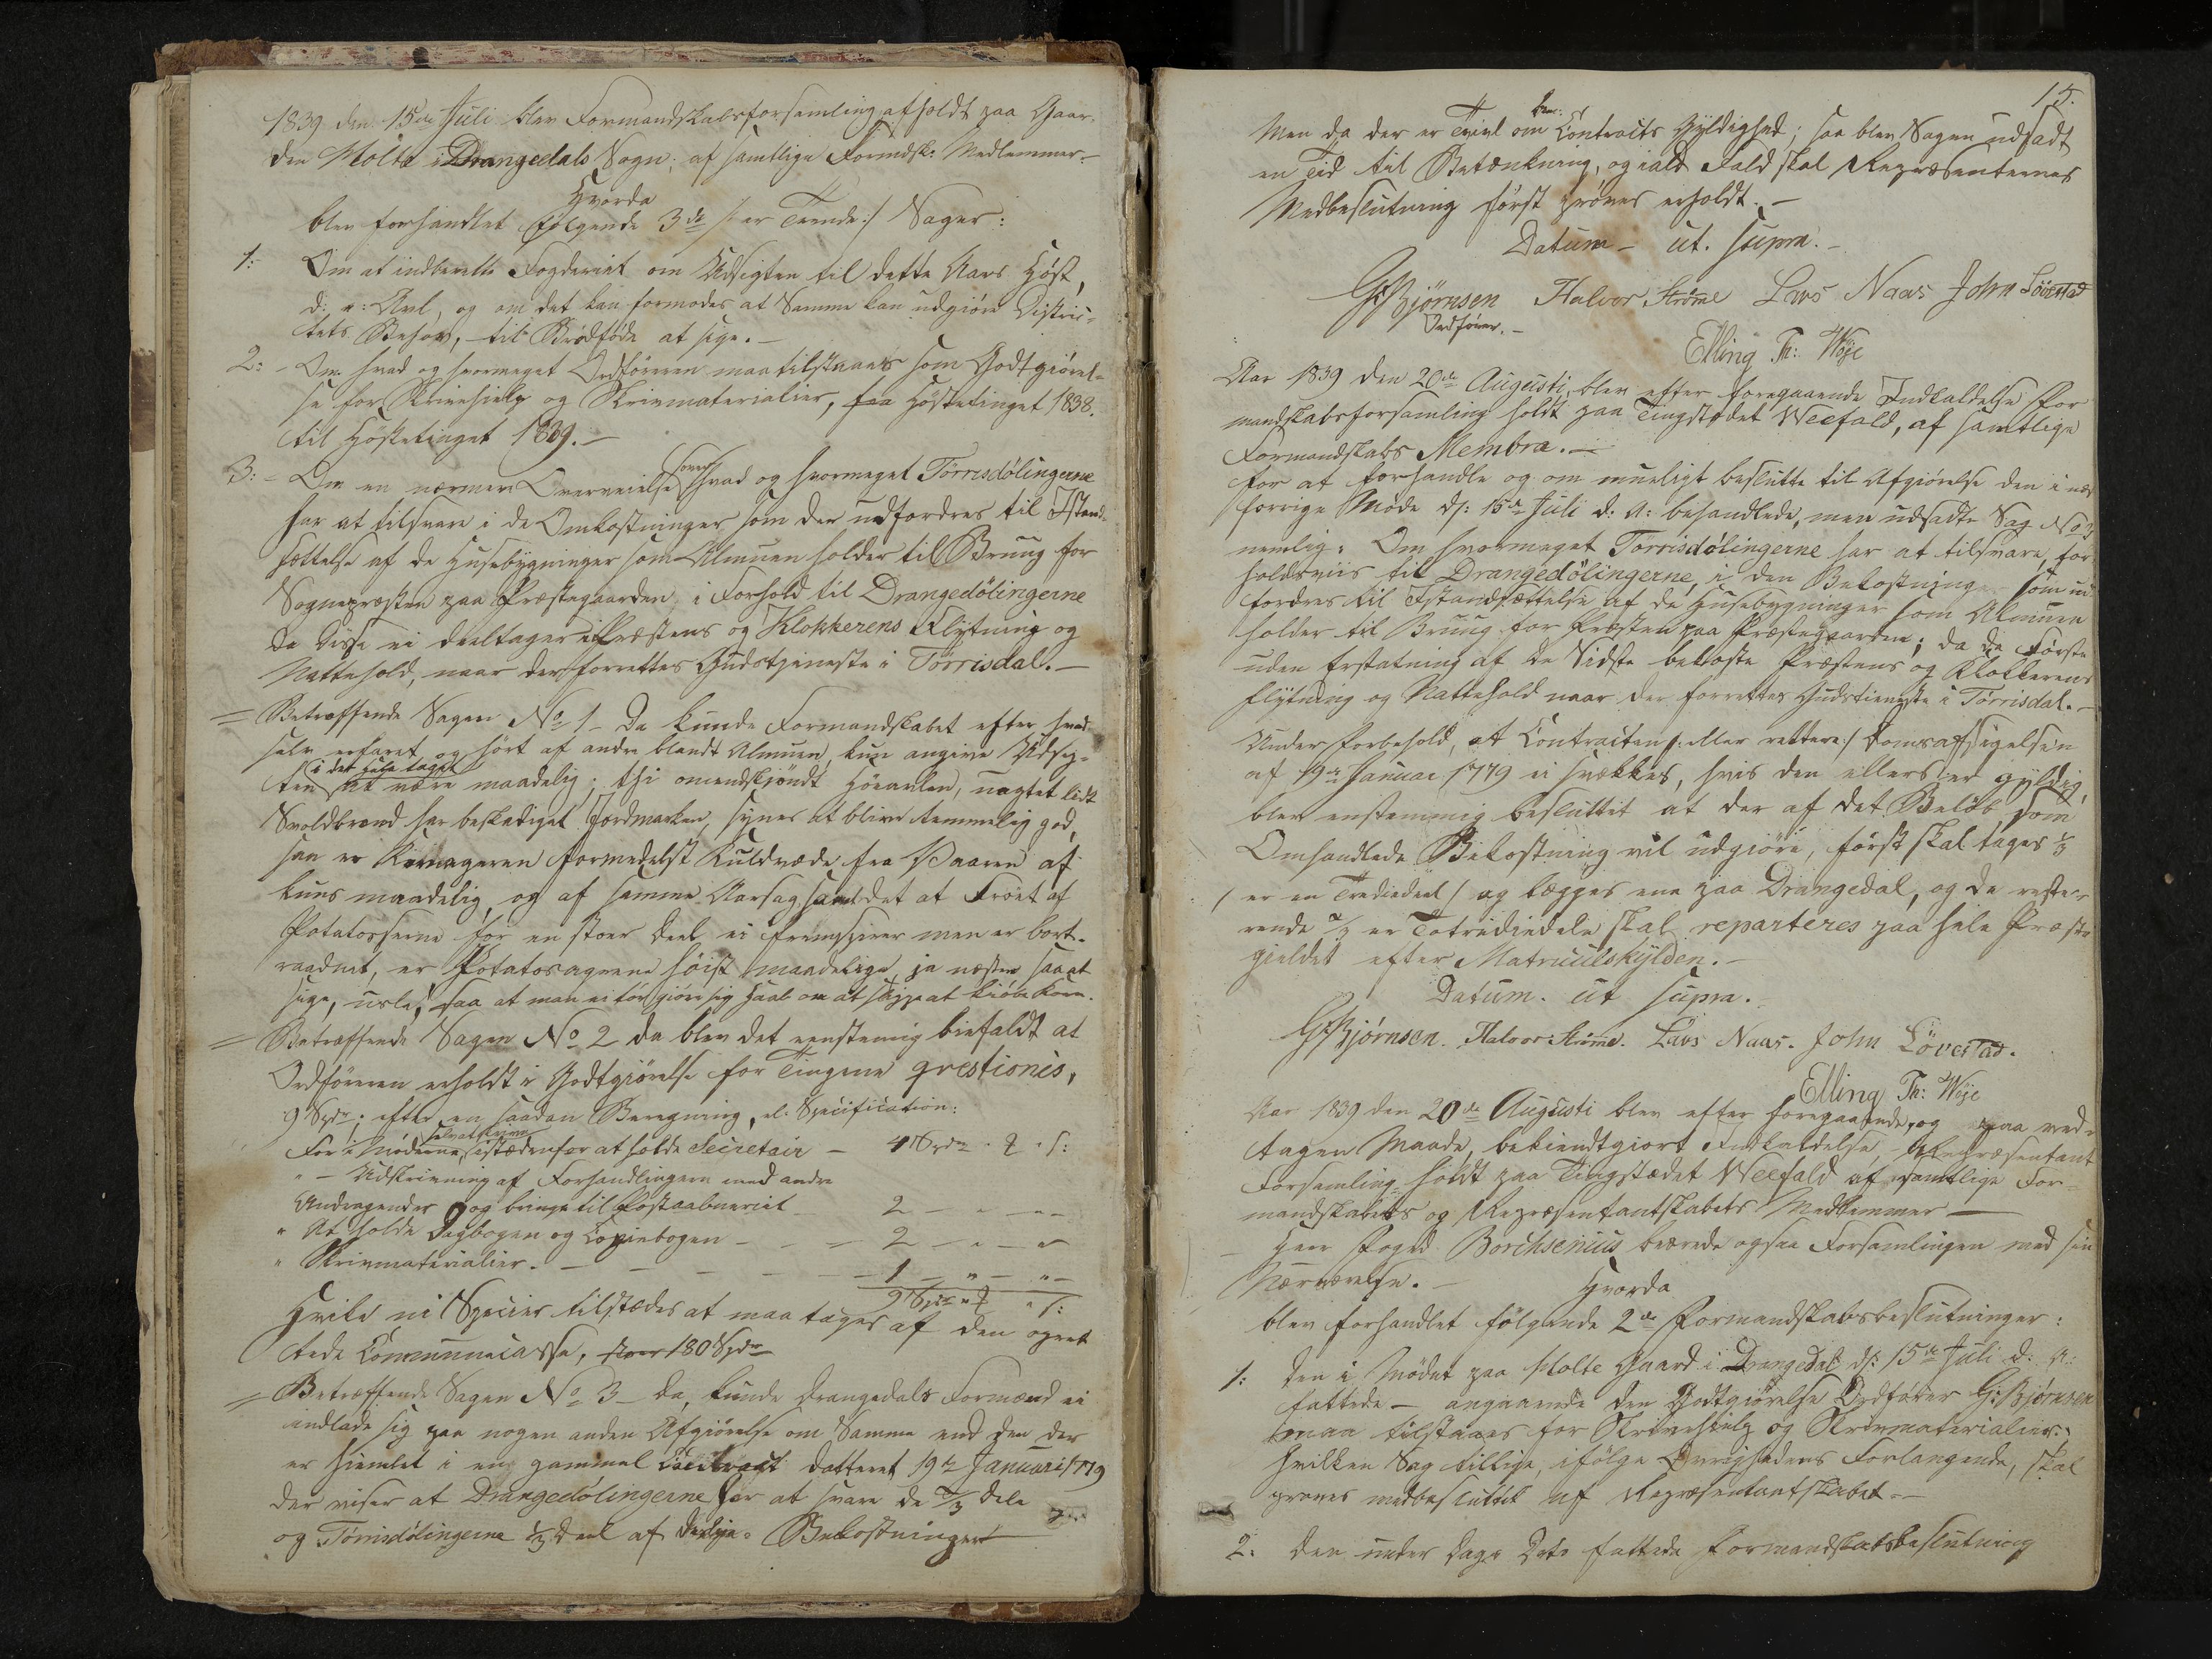 1839 den 15de Juli blev Formandskabsforsamling afholdt paa Gaar-
den Molte i Drangedals Sogn; af samtlige Formdsk: Medlemmer.-
Hvorda
blev forhandlet følgende 3de /: er Trende :/ Sager:
1: Om at indberette Fogderiet om Udsigten til dette Aars Høst,
d: v: Avl, og om det kan formodes at Samme kan udgiøre Distric-
tets Behov, - til Brødføde at sige. -
2: - Om hvad og hvormeget Ordføreren maa tilstaaes som Godtgiørel-
se for Skrivehielp og Skrivmaterialier, fra Høstetinget 1838.
til Høstetinget 1839. -
3: - Om en nærmere Overveielse hvad og hvormeget Tørrisdølingerne
har at tilsvare i de Omkostninger som der udfordres til Istand-
sættelse af de Huusebygninger som Almuen holder til Bruug for
Sognepræsten paa Præstegaarden, i Forhold til Drangedølingerne
da disse ei deeltager i Præstens og Klokkerens Flytning og
Nattehold, naar der forrettes Gudstjeneste i Tørrisdal. -
= Betræffende Sagen No 1 - Da kunde Formandskabet efter hvad
selv erfaret og hørt af andre blandt Almuen, kun angive Udsig-
i det hele taget
ten at være maadelig; thi omendskjøndt Høeavlen, uagtet lidt
Svoldbrand har beskadiget Jordmarken, synes at blive temmelig god,
saa er Kornageren formedelst Kuldræde fra Vaaren af
kuns maadelig, og af samme Aarsag samt det at Frøet af
Potatosserne for en stoer Deel ei fremspirer men er bort-
raadnet, er Potatosagrene høist maadelige, ja næsten saa at
sige, usle; saa at man ei tør giøre sig Haab om at slippe at kiøbe Korn.
= Betræffende Sagen No 2 da blev det eenstemig biefaldt at
Ordføreren erholdt i Godtgiørelse for Tingene qvestionis,
9 Spdr; efter en saadan Beregning, el. Specification:
selv at skrive
For i Møderne, istædenfor at holde Secretair - 4 Spdr " ₰ " s:
" - Udskrivning af Forhandlingern med andre
Andragender og bringe til Postaabneriet - 2 - " - " -
" At holde Dagbogen og Copiebogen - - - 2 - " - "
" Skrivmaterialier. - - - - - 1 - " - " -
9 Spdr " ₰ " s:
Hvilke ni Species tilstædes at maa tages af den opret-
tede Communecassa, 180 Spdr
= Betræffende Sagen No 3 - da, kunde Drangedals Formænd ei
indlade sig paa nogen anden Afgiørelse om Samme end den der
er hiemlet i en gammel Contract datteret 19de Januari 1779
der viser at Drangedølingerne har at svare de 2/3 Dele
og Tørrisdølingerne 1/3 Deel af deslige Bekostninger
15.
Men da der er Tvivl om Contracts Gyldighed; saa blev Sagen udsadt
en Tid til Betænkning, og iald Fald skal Repræsenternes
Medbeslutning først prøves erholdt. -
Datum - ut. supra. -
G: Bjørnsen Halvor Strøme Lars Naas John Løvestad
Ordfører. -
Elling Th: Wøje
Aar 1839 den 20de Augusti, blev efter foregaaende Indkaldelse For
mandskabsforsamling holdt paa Tingstædet Weefald, af samtlige
Formandskabs Membra. -
for at forhandle og om mueligt beslutte til Afgiørelse den i næst
forrige Møde d: 15de Juli d: A: behandlede, men udsadte Sag No 3
nemlig: Om hvormeget Tørrisdølingerne har at tilsvare, for
holdsviis til Drangedølingerne, i den Bekostning som ud-
fordres til Istandsættelse af de Huusebygninger som Almuen
holder til Bruug for Præsten paa Præstegaarden; da de Første
uden Erstatning af de Sidste bekoste Præstens og Klokkerens
Flytning og Nattehold naar der forrettes Gudstieneste i Tørrisdal. -
Under Forbehold, at Contracten /: eller rettere :/ Domsaffsigelsen
af 19de Januar 1779 ei svækkes, hvis den ellers er gyldig,
blev eenstemmig besluttet at der af det Beløb som
Omhandlede Bekostning vil udgiøre, først skal tages 1/3
/ er en Trediedeel / og lægges ene paa Drangedal, og de reste-
rende 2/3 er Totrediedele skal reparteres paa hele Præste
gieldet efter Matriculskylden. -
Datum. ut supra.
G: Bjørnsen. Halvor Strøme. Lars Naas. John Løvestad.
Elling Th: Wøje
Aar 1839 den 20de Augusti blev efter foregaaende, og paa ved-
tagen Maade, bekiendtgiort Indkaldelse, Repræsentant
Forsamling holdt paa Tingstædet Weefald af samtlige For-
mandskabets og Repræsentantskabets Medlemmer -
- Herr Foged Borchsenius beærede ogsaa Forsamlingen med sin
Nærværelse. - Hvorda
blev forhandlet følgende 2de Formandskabsbeslutninger:
1: Den i Mødet paa Molte Gaard i Drangedal d: 15de Juli d: A:
fattede - angaaende den Godtgiørelse Ordfører G: Bjørnsen
maa tilstaaes for Skrivehielp og Skrivmaterialier:
hvilken Sag tillige, ifølge Øvrighedens Forlangende, skal
prøves medbesluttet af Repræsentantskabet. -
2: Den under Dags Dato fattede Formandskabsbeslutning